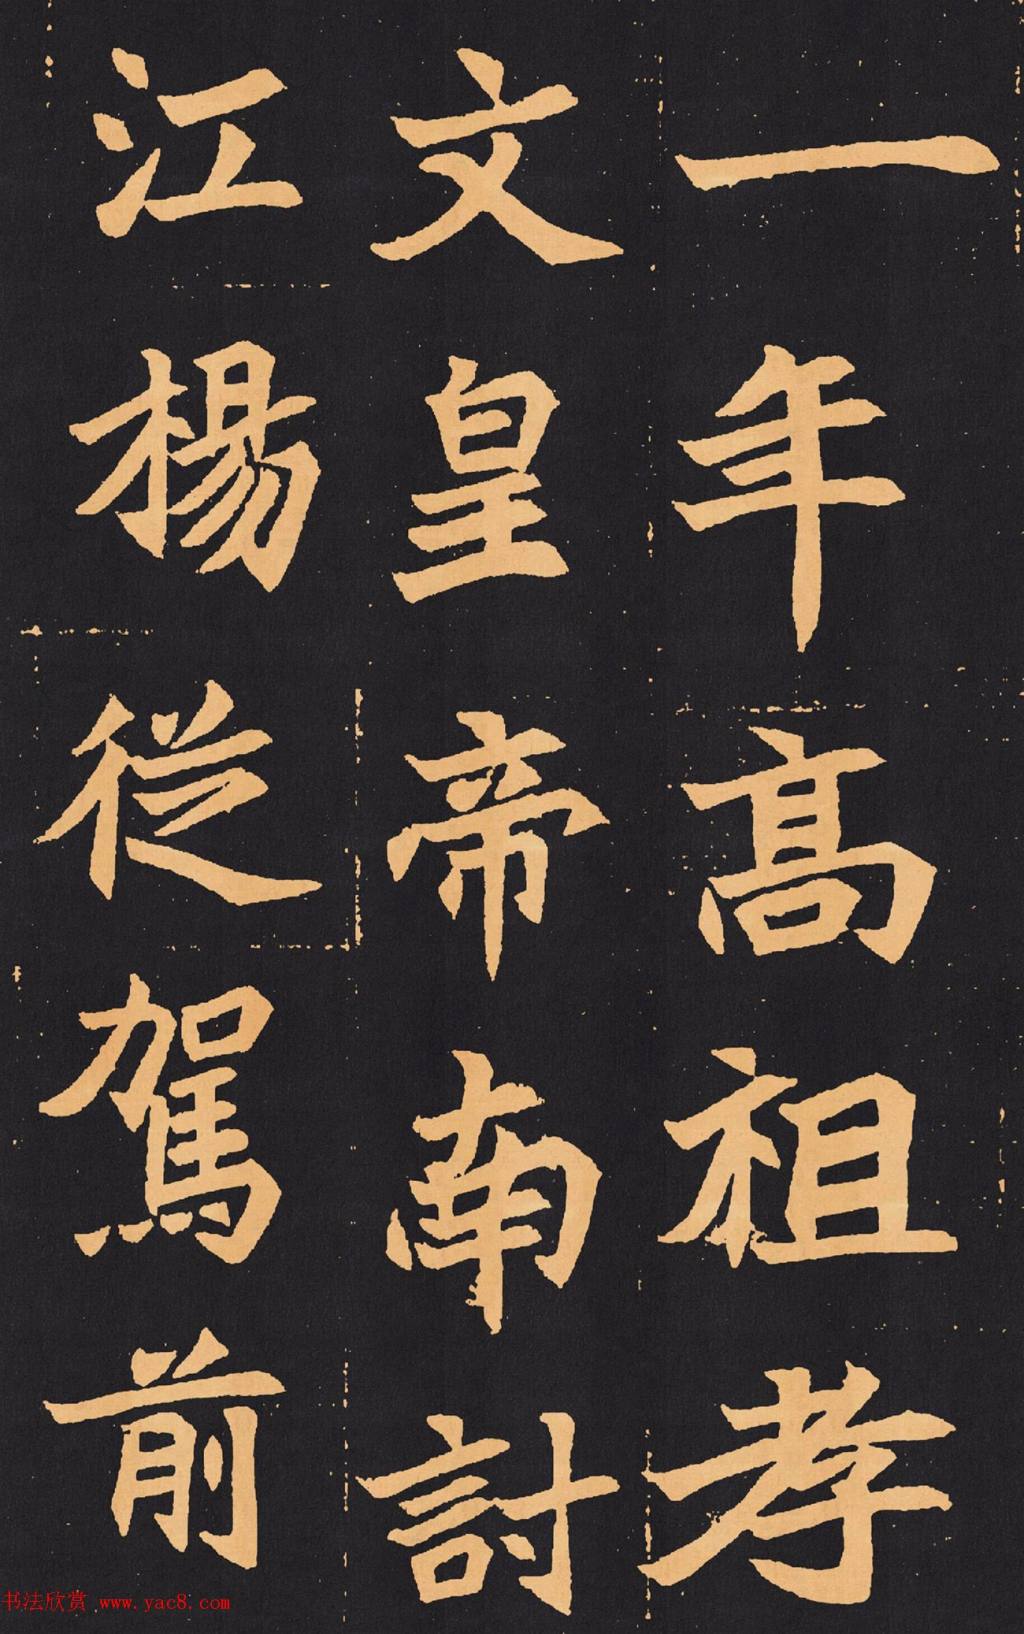 一年高祖孝
文皇帝南討
江楊從駕前
书法欣赏 www.yac8.com